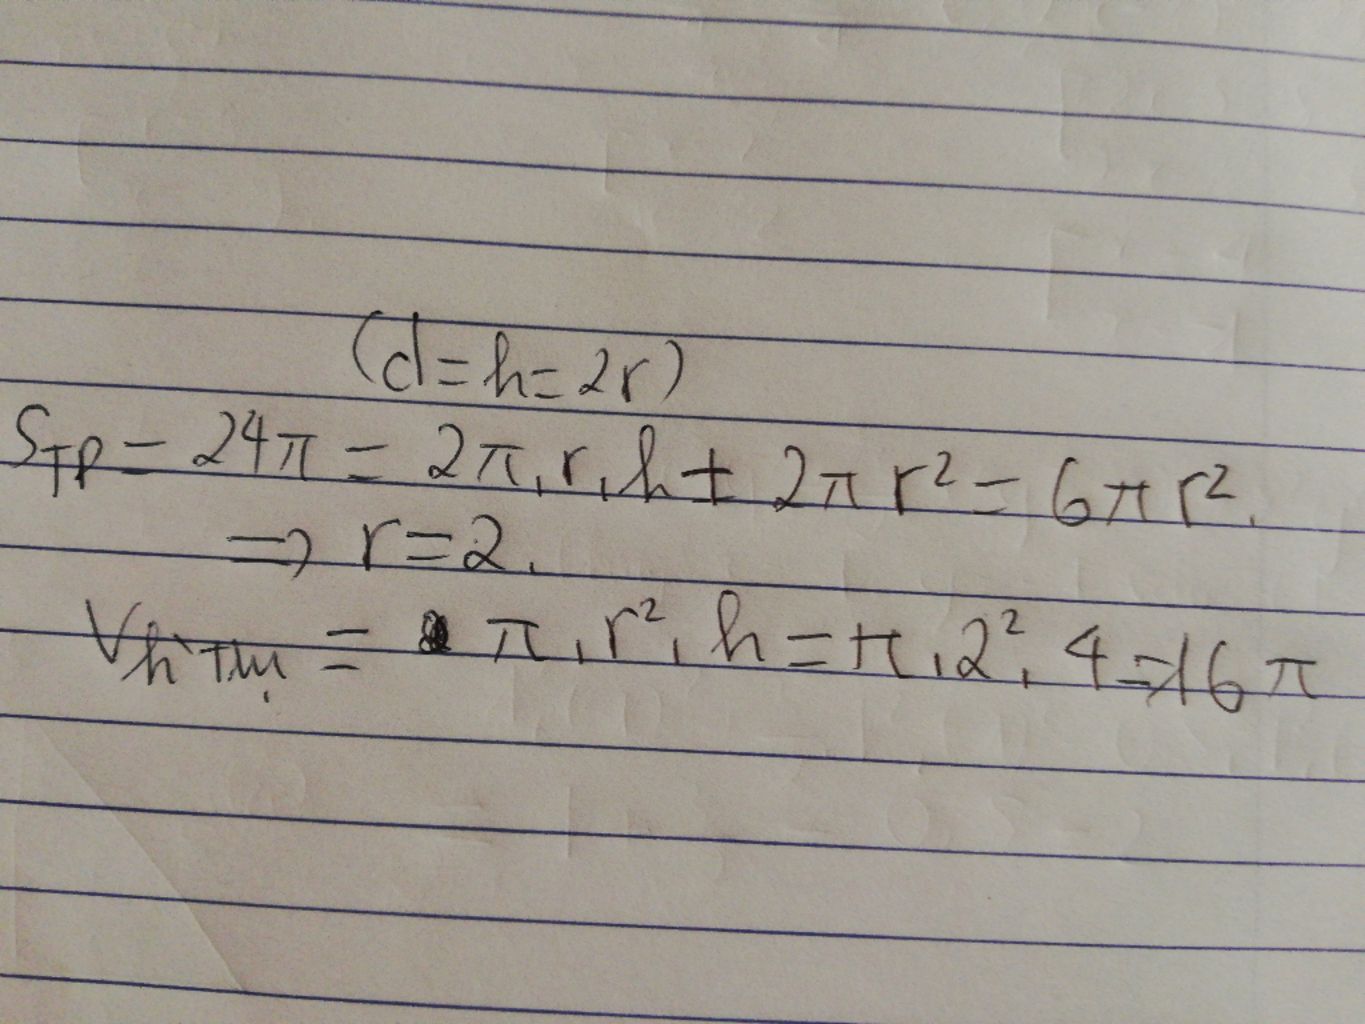 (d=h=2r)
S_TP = 24π = 2π.r.h + 2πr² = 6πr².
⇒ r=2.
V_h trụ = π.r².h = π.2².4=16π